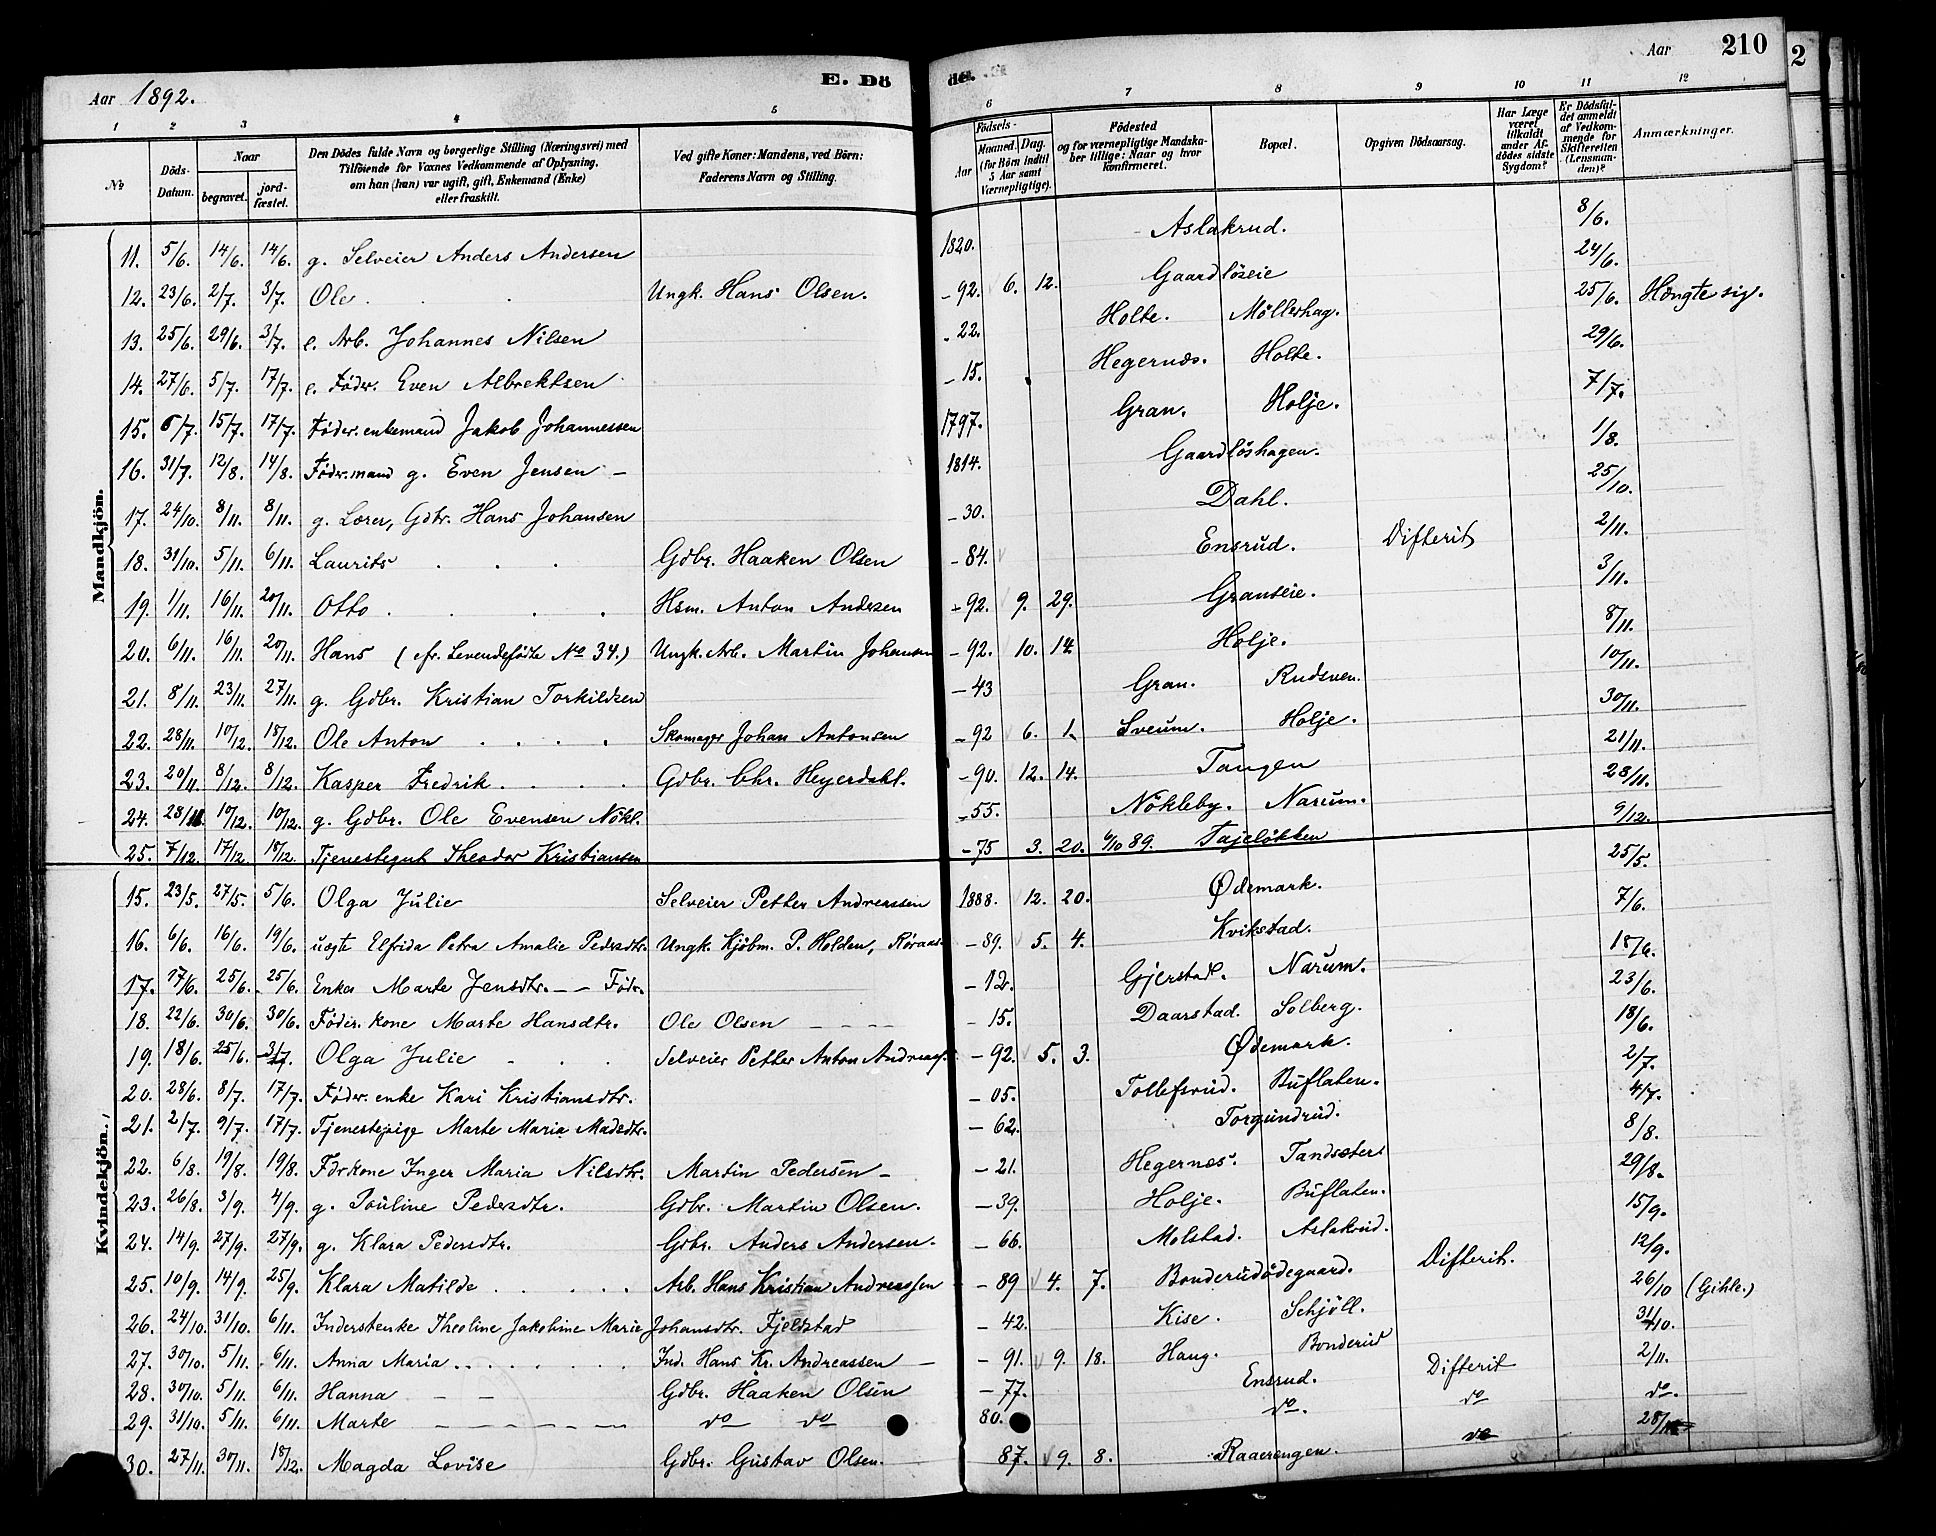 Aar 1892. E. Dö
de. Aar 210
2
1 2 3 4 5 6 7 8 9 10 11 12
№
Döds-Datum.
Naar
begravet.
jord-fæstet.
Den Dödes fulde Navn og borgerlige Stilling (Næringsvei) med
Tilföiende for Voxnes Vedkommende af Oplysning,
om han (hun) var ugift, gift, Enkemand (Enke)
eller fraskilt.
Ved gifte Koner: Mandens, ved Börn:
Faderens Navn og Stilling.
Födsels-
Aar
Maaned. Dag.
(for Börn indtil
5 Aar samt
Værnepligtige).
Födested
og for værnepligtige Mandska-
ber tillige: Naar og hvor
konfirmeret.
Bopæl.
Opgiven Dödsaarsag.
Har Læge
været
tilkaldt
under Af-
dödes sidste
Sygdom?
Er Dödsfal-
det anmeldt
af Vedkom-
mende for
Skifteretten
(Lensman-
den)?
Anmærkninger.
Mandkjön.
11. 5/6. 14/6. 14/6. g. Selveier Anders Andersen 1820. Aslakrud. 8/6.
12. 23/6. 2/7. 3/7. Ole . . Ungk. Hans Olsen. -92. 6. 12. Gaardlöseie 24/6.
13. 25/6. 29/6. 3/7. e. Arb. Johannes Nilsen -22. Holte. Möllerhag. 25/6. Hængte sig.
14. 27/6. 5/7. 17/7. e. Föder. Even Albrektsen -15. Hegernæs. Holte. 29/6.
15. 6/7. 15/7. 17/7. Föder. enkemand Jakob Johannessen 1797. Gran. Holje. 7/7.
16. 31/7. 12/8. 14/8. Föder. mand g. Even Jensen - 1814. Gaardlöshagen. 1/8.
17. 24/10. 8/11. 8/11. g. Lærer, Gdbr. Hans Johansen -30. Dahl. 25/10.
18. 31/10. 5/11. 6/11. Laurits . . . Gdbr. Haaken Olsen -84. Ensrud. Difterit 2/11.
19. 1/11. 16/11. 20/11. Otto . . . . Hsm. Anton Andersen -92. 9. 29. Granseie. 3/11.
20. 6/11. 16/11. 20/11. Hans (cfr. Levendefödte No 34.) Ungk. Arb. Martin Johansen -92. 10. 14. Holje. 8/11.
21. 8/11. 23/11. 27/11. g. Gdbr. Kristian Torkildsen -43 Gran. Rudsven. 10/11.
22. 28/11. 10/12. 18/12. Ole Anton . . . . Skomager Johan Antonsen -92 6. 1. Sveum. Holje. 30/11.
23. 20/11. 8/12. 8/12. Kasper Fredrik . . . . Gdbr. Chr. Heyerdahl. -90. 12. 14. Tangen 21/11.
24. 28/11. 10/12. 10/12. g. Gdbr. Ole Evensen Nökl. -55. Nökleby. Narum. 28/11.
25. 7/12. 17/12. 18/12. Tjenestegut Theodor Kristiansen -75 3. 20. 6/10 89. Tajelökken 9/12.
Kvindekjön.
15. 23/5. 27/5. 5/6. Olga Julie Selveier Petter Andreassen 1888. 12. 20. Ødemark. 25/5.
16. 6/6. 16/6. 19/6. uægte Elfrida Petra Amalie Pedersdtr. Ungk. Kjöbm. P. Holden, Röraas -89. 5. 4. Kvikstad. 7/6.
17. 17/6. 25/6. 25/6. Enke Marte Jensdtr. - - Födr. -12. Gjerstad. Narum. 18/6.
18. 22/6. 30/6. 30/6. Föder. kone Marte Hansdtr. Ole Olsen - - - -15. Daarstad. Solberg. 23/6.
19. 18/6. 25/6. 3/7. Olga Julie - . . Selveier Petter Anton Andreas. -92. 5. 3. Ødemark. 18/6.
20. 28/6. 8/7. 17/7. Föder. enke Kari Kristiansdtr. -05. Tollefsrud. Buflaten. 2/7.
21. 2/7. 9/7. 17/7. Tjenestepige Marte Maria Madsdtr. -62. Torgundrud. 4/7.
22. 6/8. 19/8. 19/8. Fdrkone Inger Maria Nilsdtr. Martin Pedersen - -21. Hegernæs. Tandsæter 8/8.
23. 26/8. 3/9. 4/9. g. Pauline Pedersdtr. Gdbr. Martin Olsen. -39. Holje. Buflaten. 29/8.
24. 14/9. 27/9. 27/9. g. Klara Pedersdtr. Gdbr. Anders Andersen. -66. Molstad. Aslakrud. 15/9.
25. 10/9. 14/9. 25/9. Klara Matilde . . . . . Arb. Hans Kristian Andreassen -89 4. 7. Bonderudödegaard. Difterit. 12/9.
26. 24/10. 31/10. 6/11. Inderstenke Theoline Jakobine Marie Johansdtr. Fjeldstad -42. Kise. Schjöll. 26/10 (Gihle.)
27. 30/10. 5/11. 6/11. Anna Maria . . . . . . Ind. Hans Kr. Andreassen - -91. 9. 18. Haug. Bonderud 31/10.
28. 30/10. 5/11. 6/11. Hanna - - Gdbr. Haaken Olsen -77. Ensrud. Difterit 2/11.
29. 31/10. 5/11. 6/11. Marte - - - - - do do 80. do. do do.
30. 27/11. 30/11. 18/12. Magda Lovise Gdbr. Gustav Olsen. 87. 9. 8. Raaerengen. do 28/11